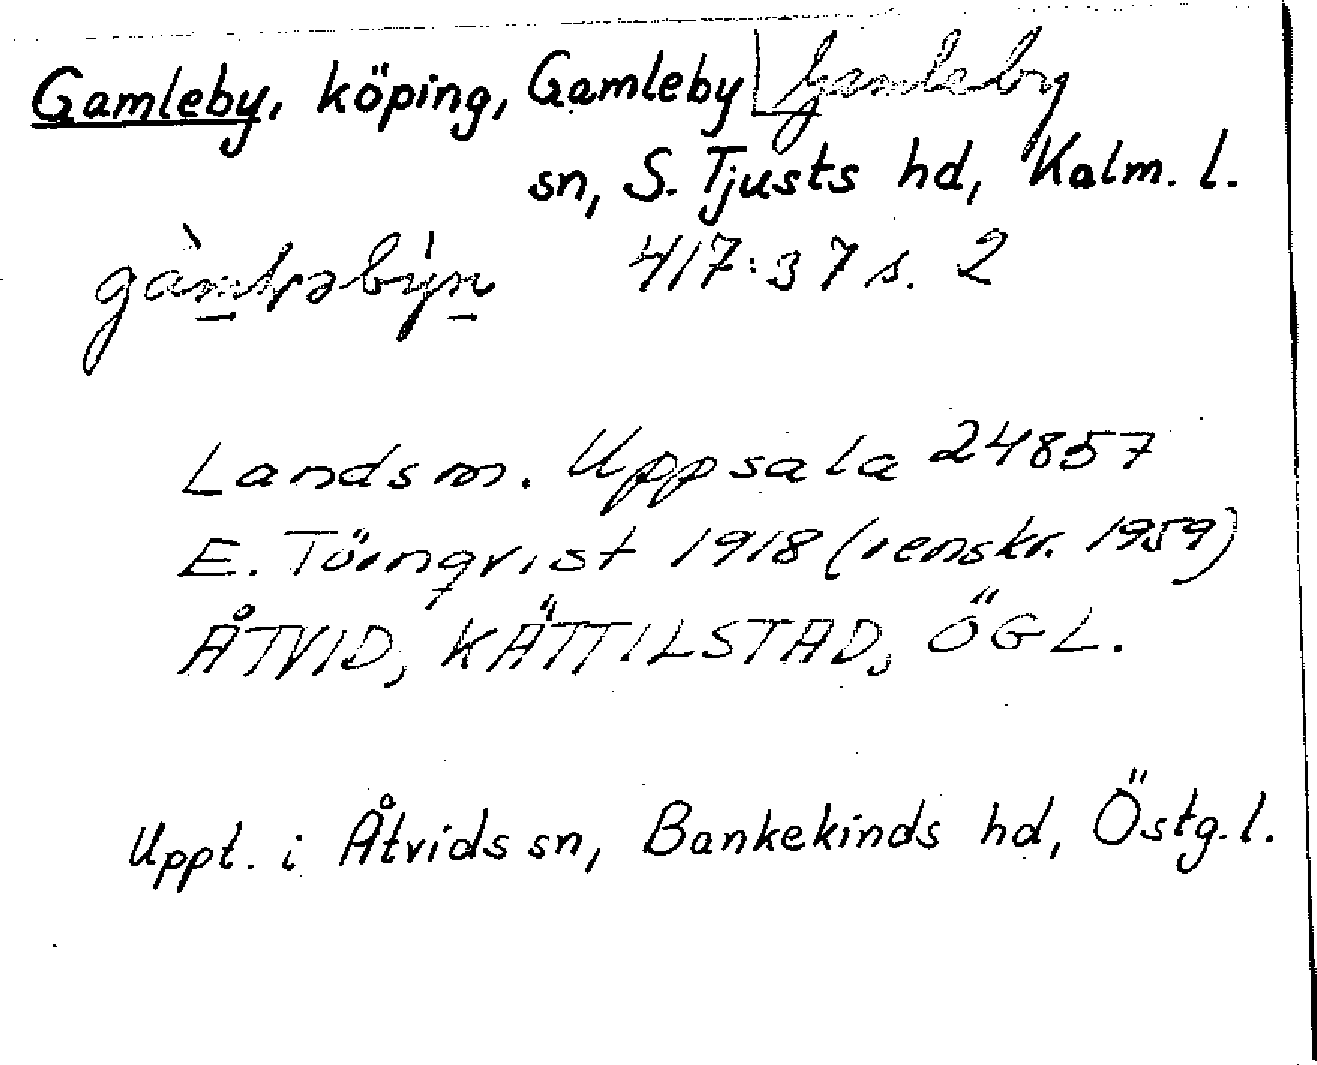 Gamleby, köping, Gamleby Gamleby
sn, S. Tjusts hd, Kalm. l.
417:37 s. 2
Landsm. Uppsala 24857
E. Törnqvist 1918 (renskr. 1959)
ÅTVID, KÄTTILSTAD, ÖGL.
Uppt. i Åtvids sn, Bankekinds hd, Östg. l.